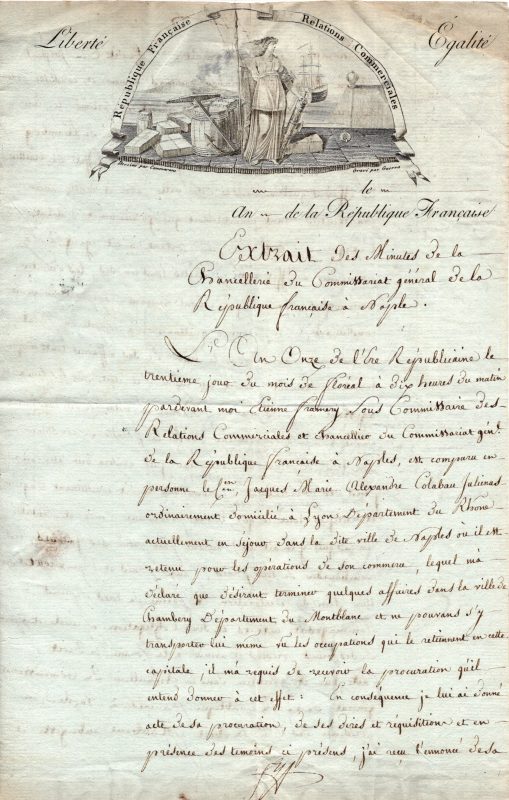 Liberté
Égalité
République Française
Relations Commerciales
le
An de la République Française
Extrait des Minutes de la
Chancellerie du Commissariat général de la
République française à Naple.
L'An Onze de l'Ere Républicaine le
trentième jour du mois de floréal à dix heures du matin
pardevant moi Etienne Framery Sous Commissaire des
Relations Commerciales et Chancellier du Commissariat génl.
de la République française à Naples, est comparu en
personne le Cen. Jacques Marie Alexandre Colabau Julienas
ordinairement domicilié à Lyon Département du Rhone
actuellement en séjour dans la dite ville de Naples où il est
retenu pour les opérations de son commerce, lequel m'a
déclaré que désirant terminer quelques affaires dans la ville de
Chambery Département du Montblanc et ne pouvans s'y
transporter lui meme vu les occupations qui le retiennent en cette
capitale, il m'a requis de recevoir la procuration qu'il
entend donner à cet effet : En conséquence je lui ai donné
acte de sa procuration, de ses dires et réquisitions et en
présence des temoins ci présens, j'ai reçu l'énoncé de sa